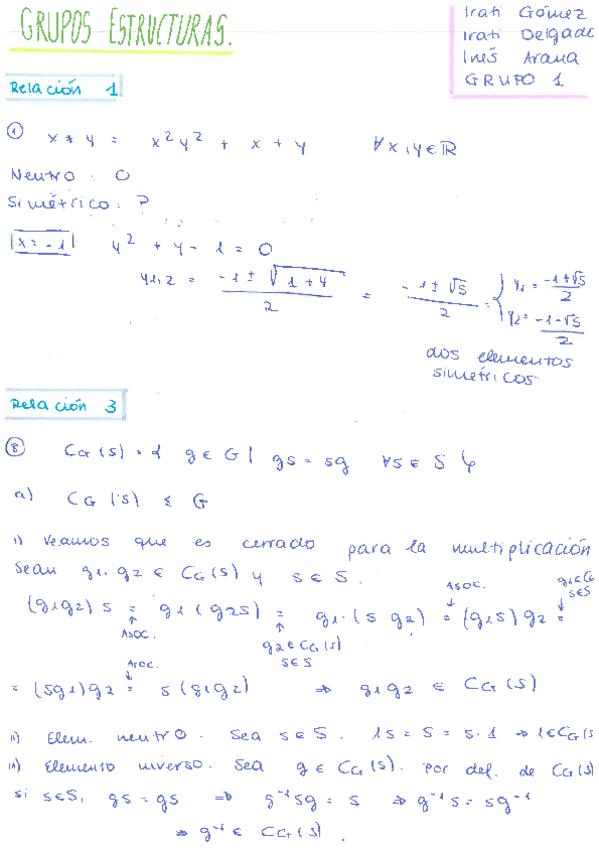 GRUPOS ESTRUCTURAS.
Irati Gómez
Irati Delgado
Inés Arana
GRUPO 1
Relación 1
① x * y = x²y² + x + y ∀x,y ∈ ℝ
Neutro : 0
Simétrico : ?
x = -1 y² + y - 1 = 0
y1,2 = (-1 ± √(1+4))/2 = (-1 ± √5)/2 = { y1 = (-1+√5)/2
y2 = (-1-√5)/2
dos elementos
simétricos
Relación 3
⑧ CG(S) = { g ∈ G | gs = sg ∀s ∈ S }
a) CG(S) ≤ G
i) Veamos que es cerrado para la multiplicación
Sean g1, g2 ∈ CG(S) y s ∈ S.
(g1g2) s = g1 (g2s) = g1·(s g2) = (g1s) g2 =
Asoc. g2 ∈ CG(S) s∈S Asoc. g1∈CG s∈S
= (sg1)g2 = s(g1g2) ⇒ g1g2 ∈ CG(S)
Asoc.
ii) Elem. neutro. Sea s∈S. 1s = s = s·1 ⇒ 1∈CG(S
iii) Elemento inverso. Sea g ∈ CG(S). Por def. de CG(S)
si s∈S, gs = gs ⇒ g⁻¹sg = s ⇒ g⁻¹s = sg⁻¹
⇒ g⁻¹ ∈ CG(S).